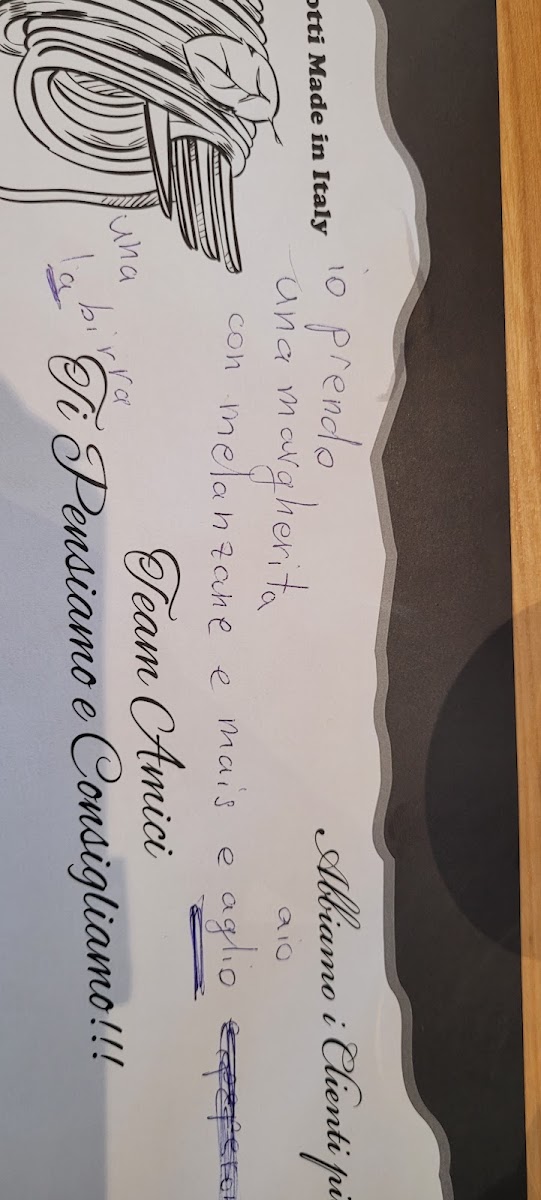 otti Made in Italy
Abbiamo i Clienti pi
io prendo
aio
una margherita
con melanzane e mais e aglio
Team Amici
una
la birra
Ti Pensiamo e Consigliamo!!!